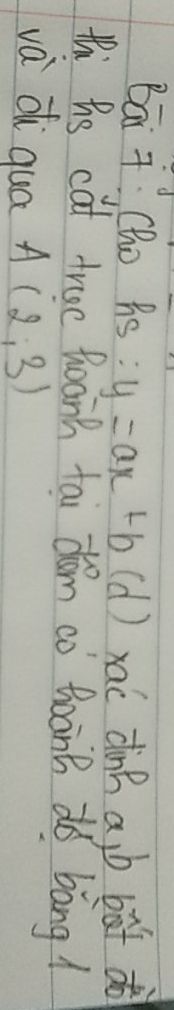 Bài 7: Cho hs: y = ax + b (d) xác định a, b biết đồ
thi hs cắt trục hoành tại điểm có hoành độ bằng 1
và đi qua A (2; 3)